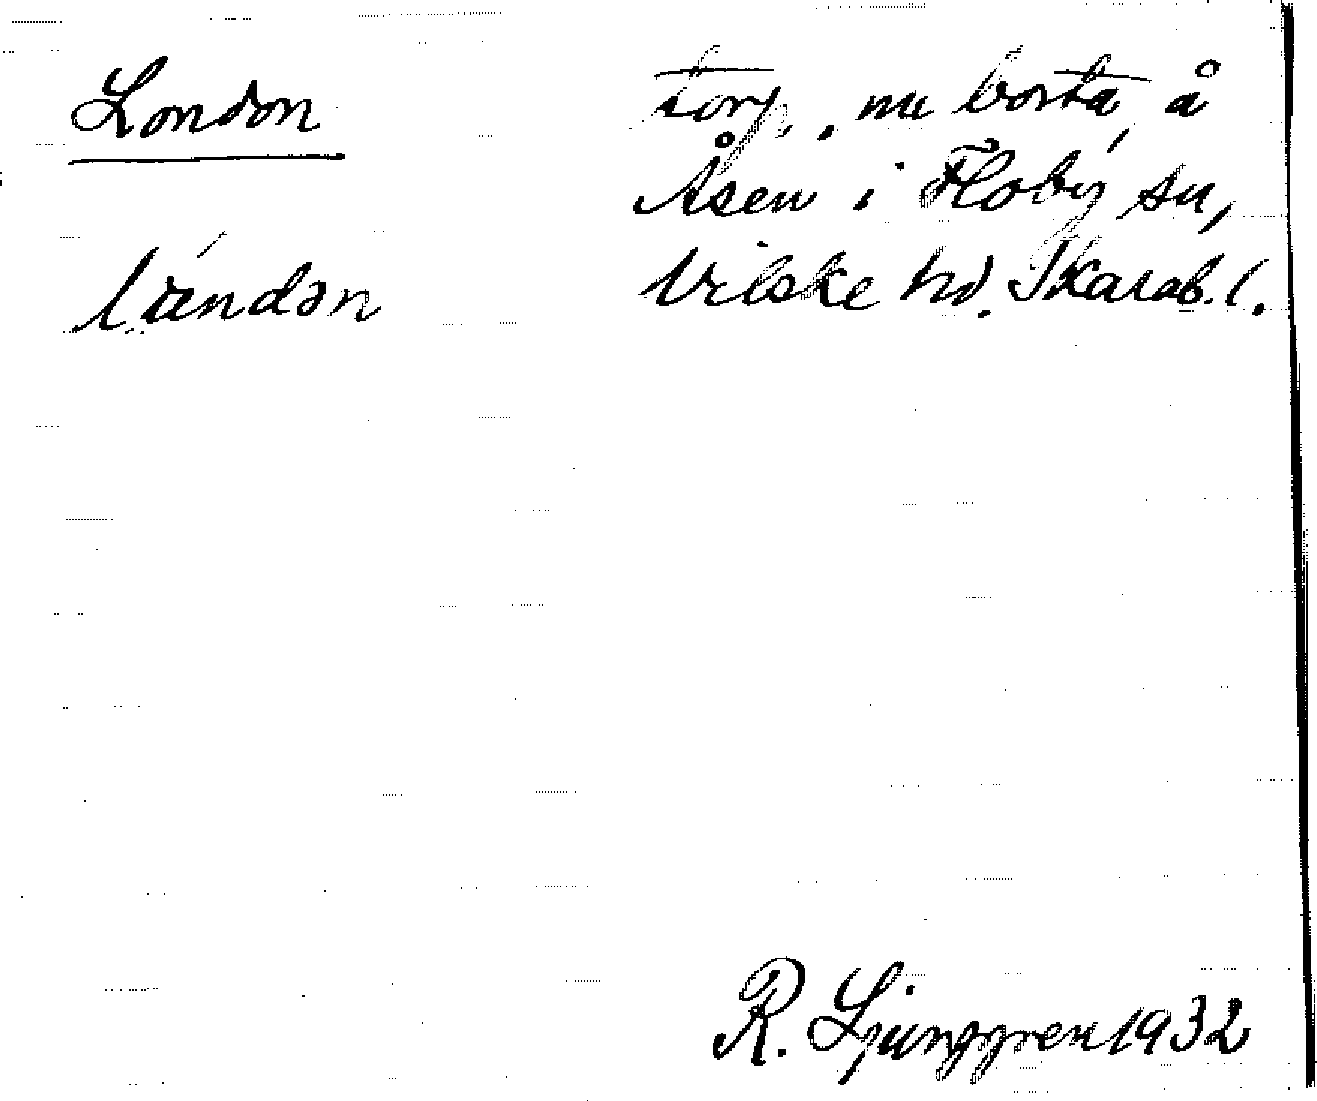 London
torp, nu borta, å
Åsen i Floby sn,
Vilske hd. Skarab. l.
R. Ljunggren 1932